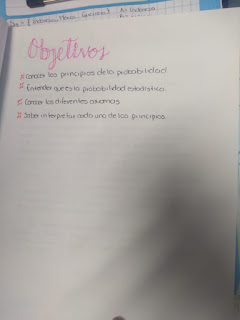 Objetivos
Conocer los principios de la probabilidad
Entender que es la probabilidad estadistica
Conocer los diferentes axiomas
Saber interpretar cada uno de los principios